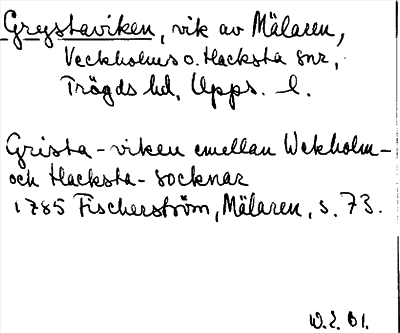 Grystaviken, vik av Mälaren,
Veckholms o. Hacksta snr,
Trögds hd, Upps. l.
Grista-viken emellan Weckholm-
och Hacksta-socknar
1785 Fischerström, Mälaren, s. 73.